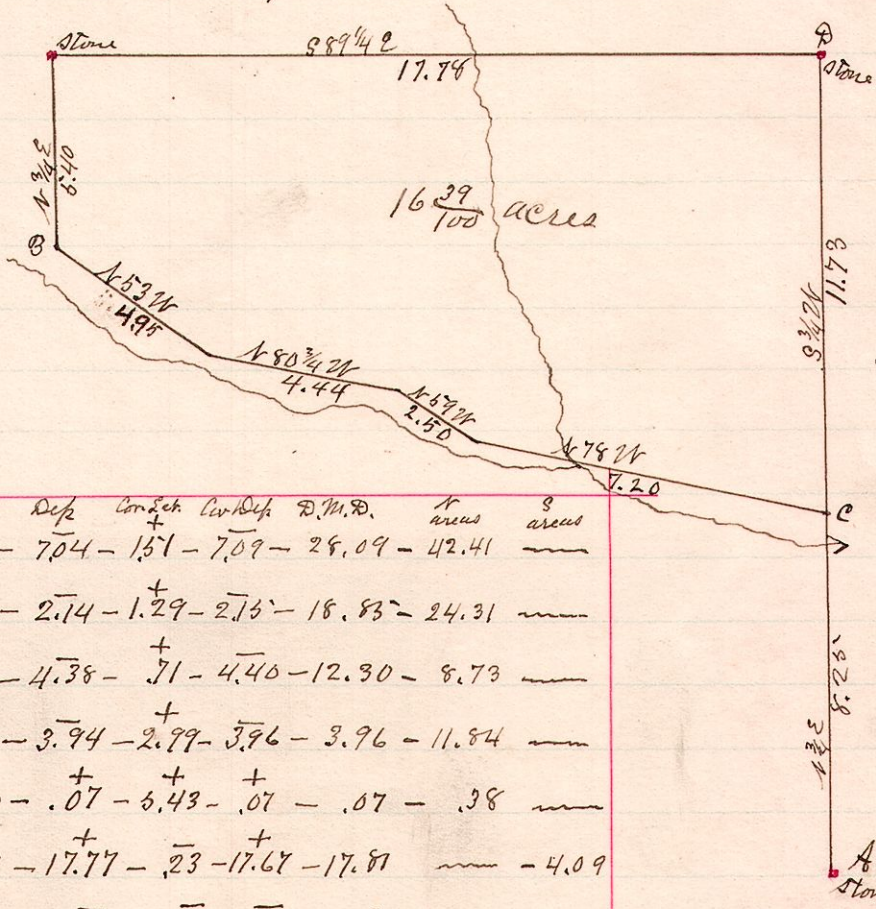 stone
S 89 1/4 E
17.78
D
stone
N 3/4 E
5.40
16 39/100 acres
S 3/4 W
11.73
B
N 53 W
4.95
N 80 3/4 W
4.44
N 59 W
2.50
N 78 W
7.20
C
Dep Cor. Lat. Cor Dep D.M.D. N areas S areas
- 7.04 - +1.51 - -7.09 - 28.09 - 42.41 —
- 2.14 - +1.29 - -2.15 - 18.85 - 24.31 —
- 4.38 - +.71 - -4.40 - 12.30 - 8.73 —
- 3.94 - +2.99 - -3.96 - 3.96 - 11.84 —
- +.07 - +5.43 - +.07 - .07 - .38 —
- +17.77 - -.23 - +17.67 - 17.81 — - 4.09
8.25
N 3/4 E
A
stone